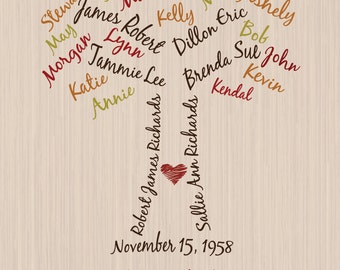 Steve
James Robert
Kelly
Dillon Eric
May
Morgan
Lynn
Tammie Lee
Katie
Annie
Bob
Brenda Sue
John
Kevin
Kendal
Robert James Richards
Sallie Ann Richards
November 15, 1958